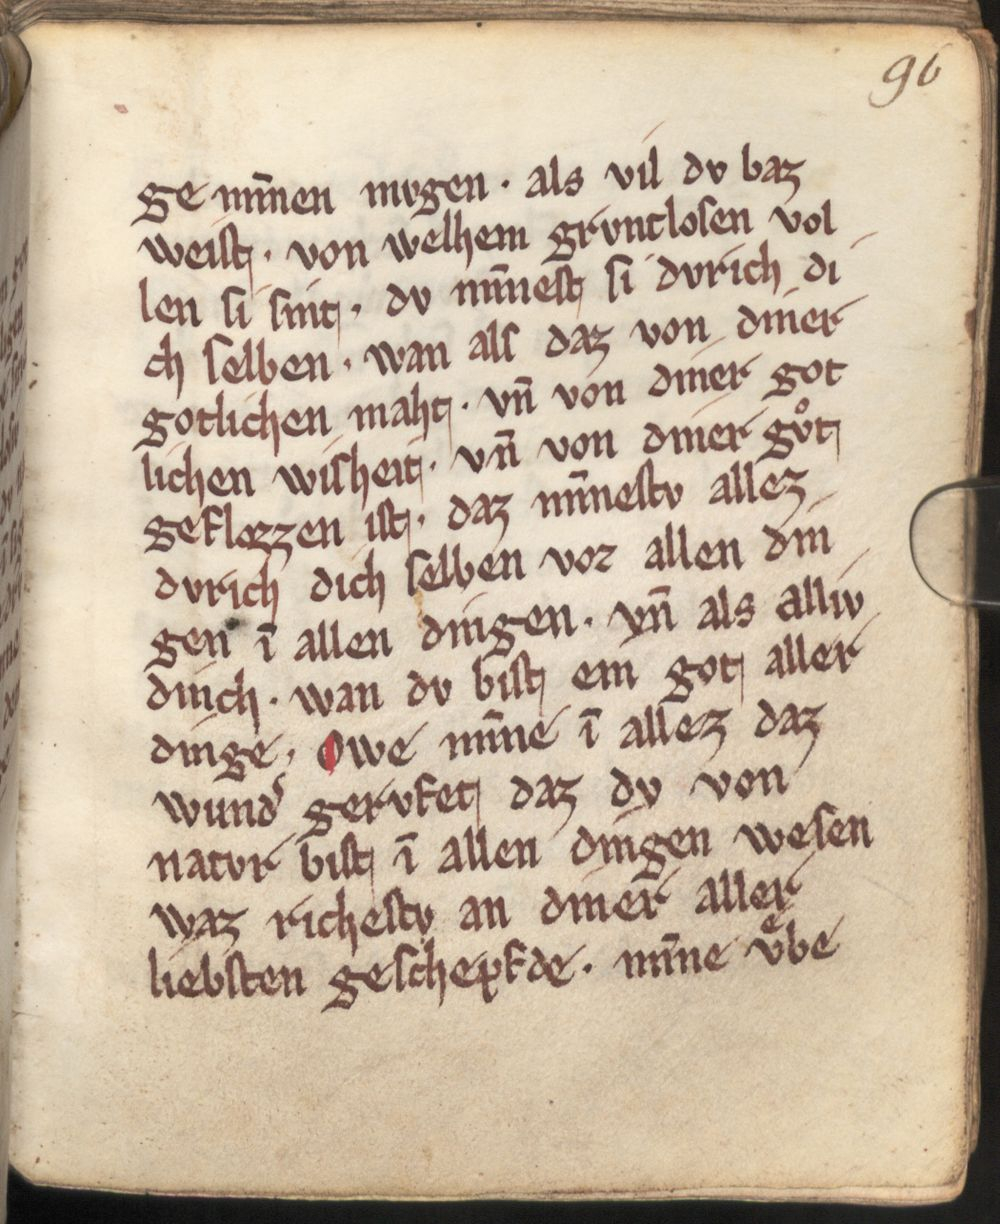 96
ge mīnen mvgen · als vil dv baz
weist · von welhem grvntlosen vol
len si sint · dv mīnest si dvrich di
ch selben · wan als daz von diner
gotlichen maht · vn̄ von diner got
lichen wisheit · vn̄ von diner gvͦt
geflozzen ist · daz mīnestv allez
dvrich dich selben vor allen din
gen ī allen dingen · vn̄ als alliv
dinch · wan dv bist ein got aller
dinge · Owe mīne ī allez daz
wund᾽ gervfet daz dv von
natvr bist ī allen dingen wesen
waz richestv an diner aller
liebsten geschepfde · mīne vͤbe